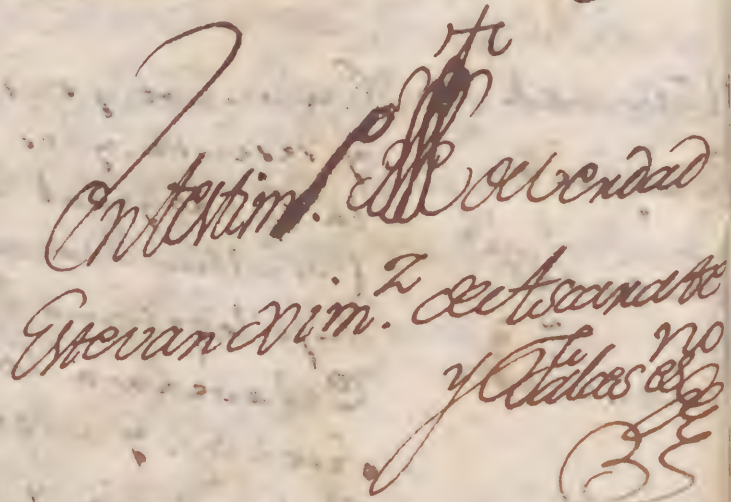 En testim.º de verdad
Estevan Xim.z de Ascarate
y Salas es.no